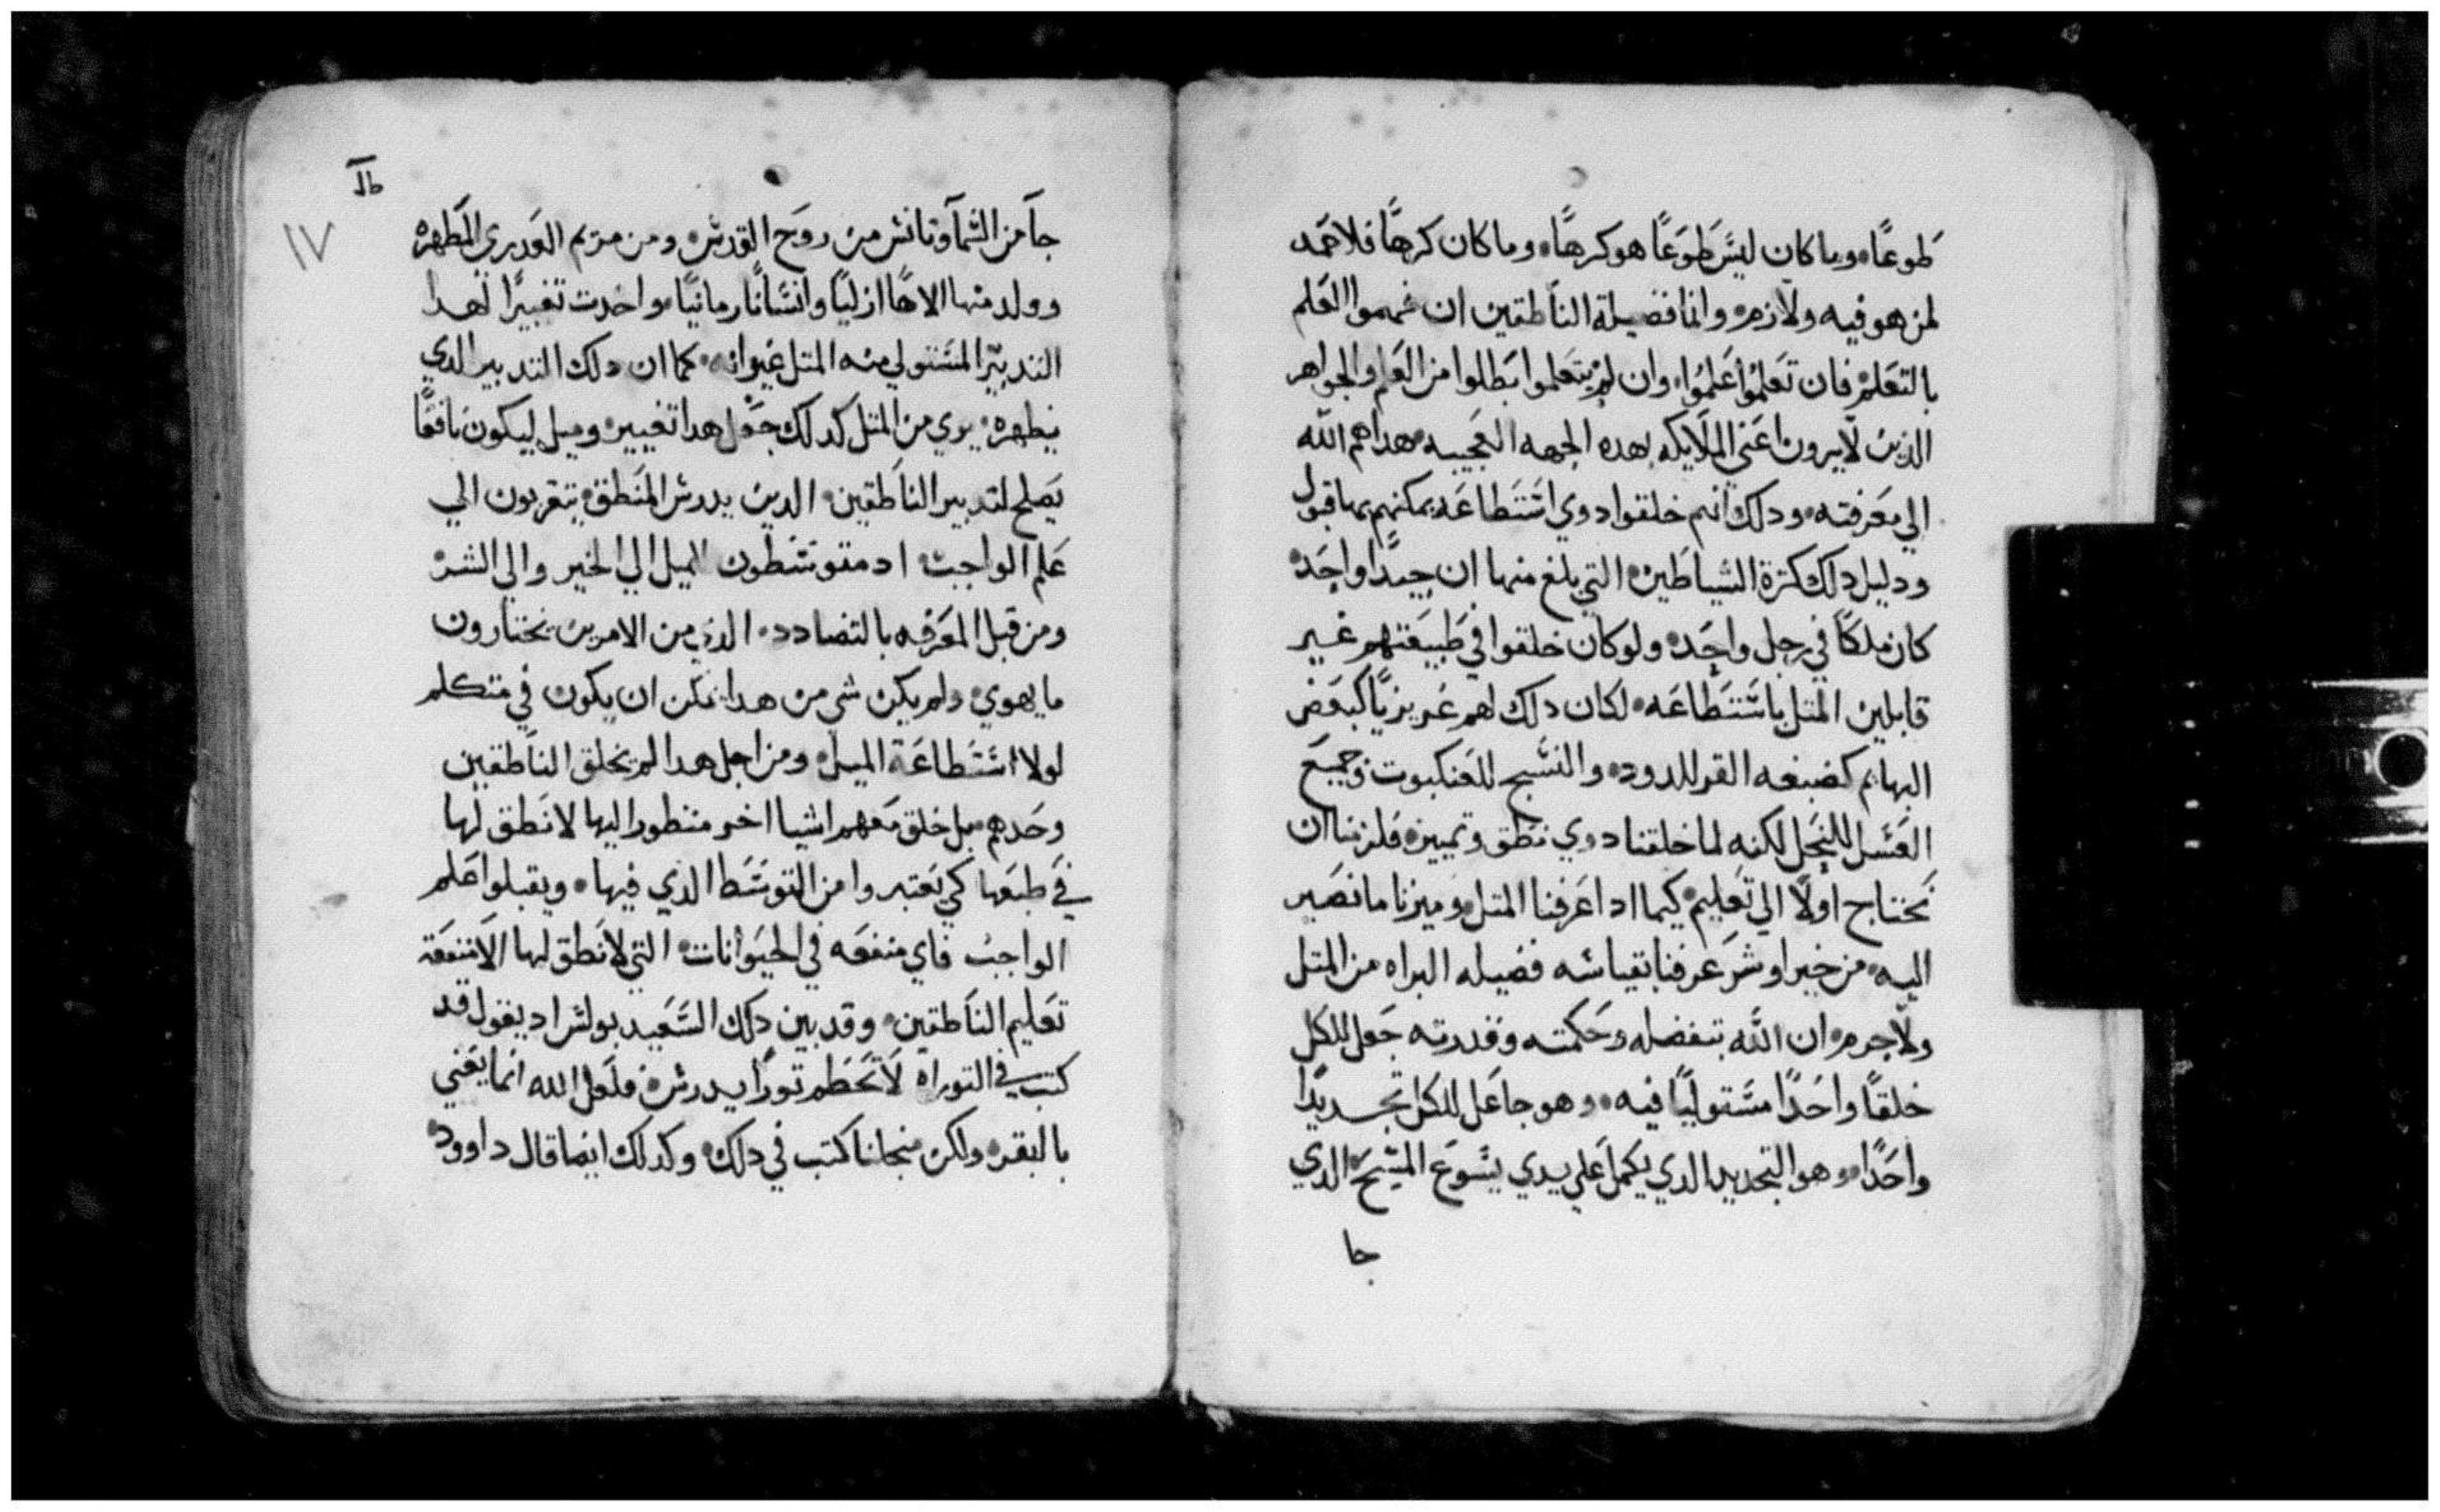 طوعًا وما كان ليس طوعًا هو كرهًا وما كان كرهًا فلا حمد
لمن هو فيه ولازم وانما فضيلة الناطقين ان فهموا العلم
بالتعلم فان تعلموا علموا وان لم يتعلموا بطلوا من العلم والجواهر
الذين لا يرون اعني الملايكه بهده الجهه العجيبه هداهم الله
الي معرفته ودلك انهم خلقوا دوي استطاعه يمكنهم بها قبول
ودليل دلك كترة الشياطين التي بلغ منها ان جيدًا واحد
كان ملكًا في رجل واحد ولو كان خلقوا في طبيعتهم غير
قابلين المتل باستطاعه لكان دلك لهم غريزيًا كبعض
البهايم كضبغه القز للدود والنسج للعنكبوت وجميع
العسل للنحل لكنه لما خلقنا دوي نطق وتمييز فلزمنا ان
نحتاج اولًا الي تعليم كيما ادا عرفنا المتل وميزنا ما نصير
اليه من خير او شر عرفنا بقياسه فضيله البراه من المتل
ولا جرم ان الله بتفضله وحكمته وقدرته جعل للكل
خلقًا واحدًا مستوليًا فيه وهو جاعل للكل تجديدًا
واحدًا وهو التجديد الدي يكمل علي يدي يسوع المسيح الدي
جا
١٧
جا من السما وتانس من روح القدس ومن مريم العدري المطهره
وولد منها الاهًا ازليًا وانسانًا زمانيًا واحدت تغييرًا لهدا
التدبير المستولي منه المتل غير انه كما ان دلك التدبير الدي
يطهره يري من المتل كدلك جعل هدا تغيير وميل ليكون نافعًا
يصلح لتدبير الناطقين الدين بدرس المنطق يتقربون الي
علم الواجب اد متوسطون الميل الي الخير والي الشر
ومن قبل المعرفه بالتضادد الدي من الامرين يختارون
ما يهوي ولم يكن شي من هدا يمكن ان يكون في متكلم
لولا استطاعة الميل ومن اجل هدا لم يخلق الناطقين
وحدهم بل خلق معهم اشيا اخر منظورًا اليها لا نطق لها
في طبعها كي يعتبروا من التوسط الدي فيها ويقبلوا علم
الواجب فاي منفعه في الحيوانات التي لا نطق لها الا منفعة
تعليم الناطقين وقد بين دلك السعيد بولس اد يقول قد
كتب في التوراه لا تحطم تورًا يدرس فلعل الله انما يعني
بالبقر ولكن منجلنا كتب في دلك وكدلك ايضا قال داوود